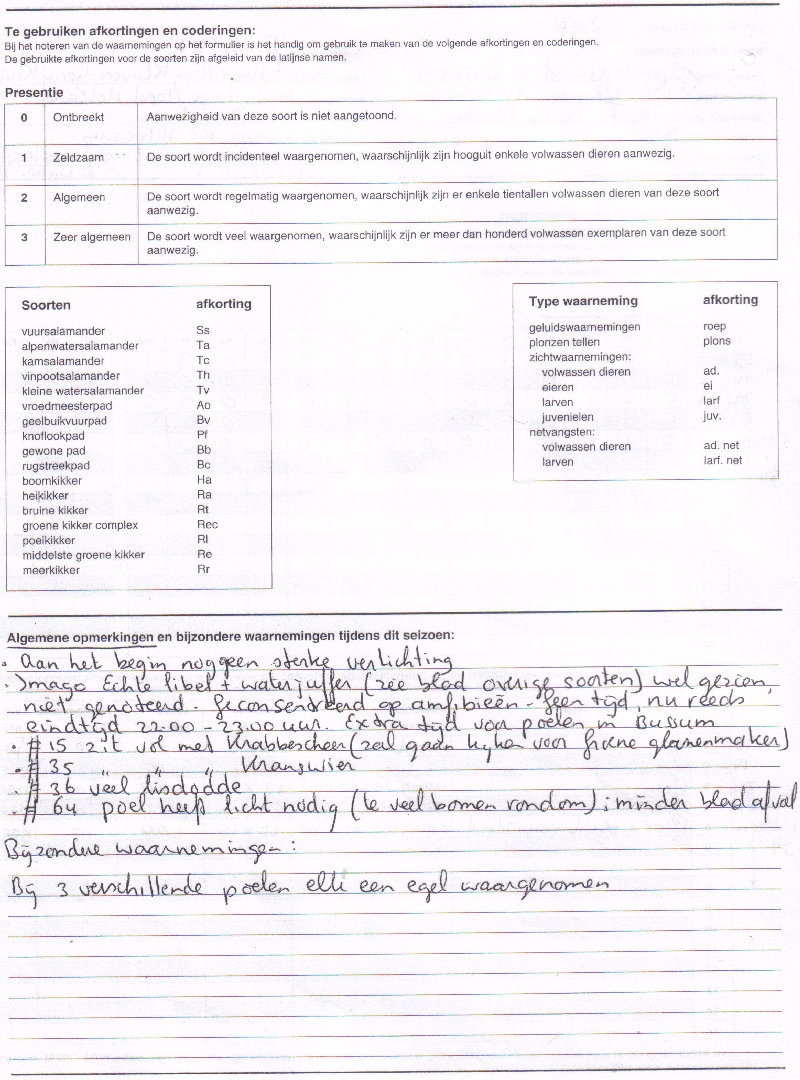 Te gebruiken afkortingen en coderingen:
Bij het noteren van de waarnemingen op het formulier is het handig om gebruik te maken van de volgende afkortingen en coderingen.
De gebruikte afkortingen voor de soorten zijn afgeleid van de latijnse namen.
Presentie
0 Ontbreekt Aanwezigheid van deze soort is niet aangetoond.
1 Zeldzaam De soort wordt incidenteel waargenomen, waarschijnlijk zijn hooguit enkele volwassen dieren aanwezig.
2 Algemeen De soort wordt regelmatig waargenomen, waarschijnlijk zijn er enkele tientallen volwassen dieren van deze soort
aanwezig.
3 Zeer algemeen De soort wordt veel waargenomen, waarschijnlijk zijn er meer dan honderd volwassen exemplaren van deze soort
aanwezig.
Soorten afkorting
vuursalamander Ss
alpenwatersalamander Ta
kamsalamander Tc
vinpootsalamander Th
kleine watersalamander Tv
vroedmeesterpad Ao
geelbuikvuurpad Bv
knoflookpad Pf
gewone pad Bb
rugstreekpad Bc
boomkikker Ha
heikikker Ra
bruine kikker Rt
groene kikker complex Rec
poelkikker Rl
middelste groene kikker Re
meerkikker Rr
Type waarneming afkorting
geluidswaarnemingen roep
plonzen tellen plons
zichtwaarnemingen:
volwassen dieren ad.
eieren ei
larven larf
juvenielen juv.
netvangsten:
volwassen dieren ad. net
larven larf. net
Algemene opmerkingen en bijzondere waarnemingen tijdens dit seizoen:
• Aan het begin nog geen sterke verlichting
• Imago Echte libel + waterjuffer (zie blad overige soorten) wel gezien,
niet genoteerd. Geconsentreerd op amfibieën - geen tijd, nu reeds
eindtijd 22.00 - 23.00 uur. Extra tijd voor poelen in Bussum
• # 15 zit vol met Krabbescheer (zal gaan kijken voor Groene glazenmaker)
• # 35 " " " Kranswier
• # 36 veel lisdodde
• # 64 poel heeft licht nodig (te veel bomen rondom) ; minder blad afval
Bijzondere waarnemingen:
Bij 3 verschillende poelen elk een egel waargenomen